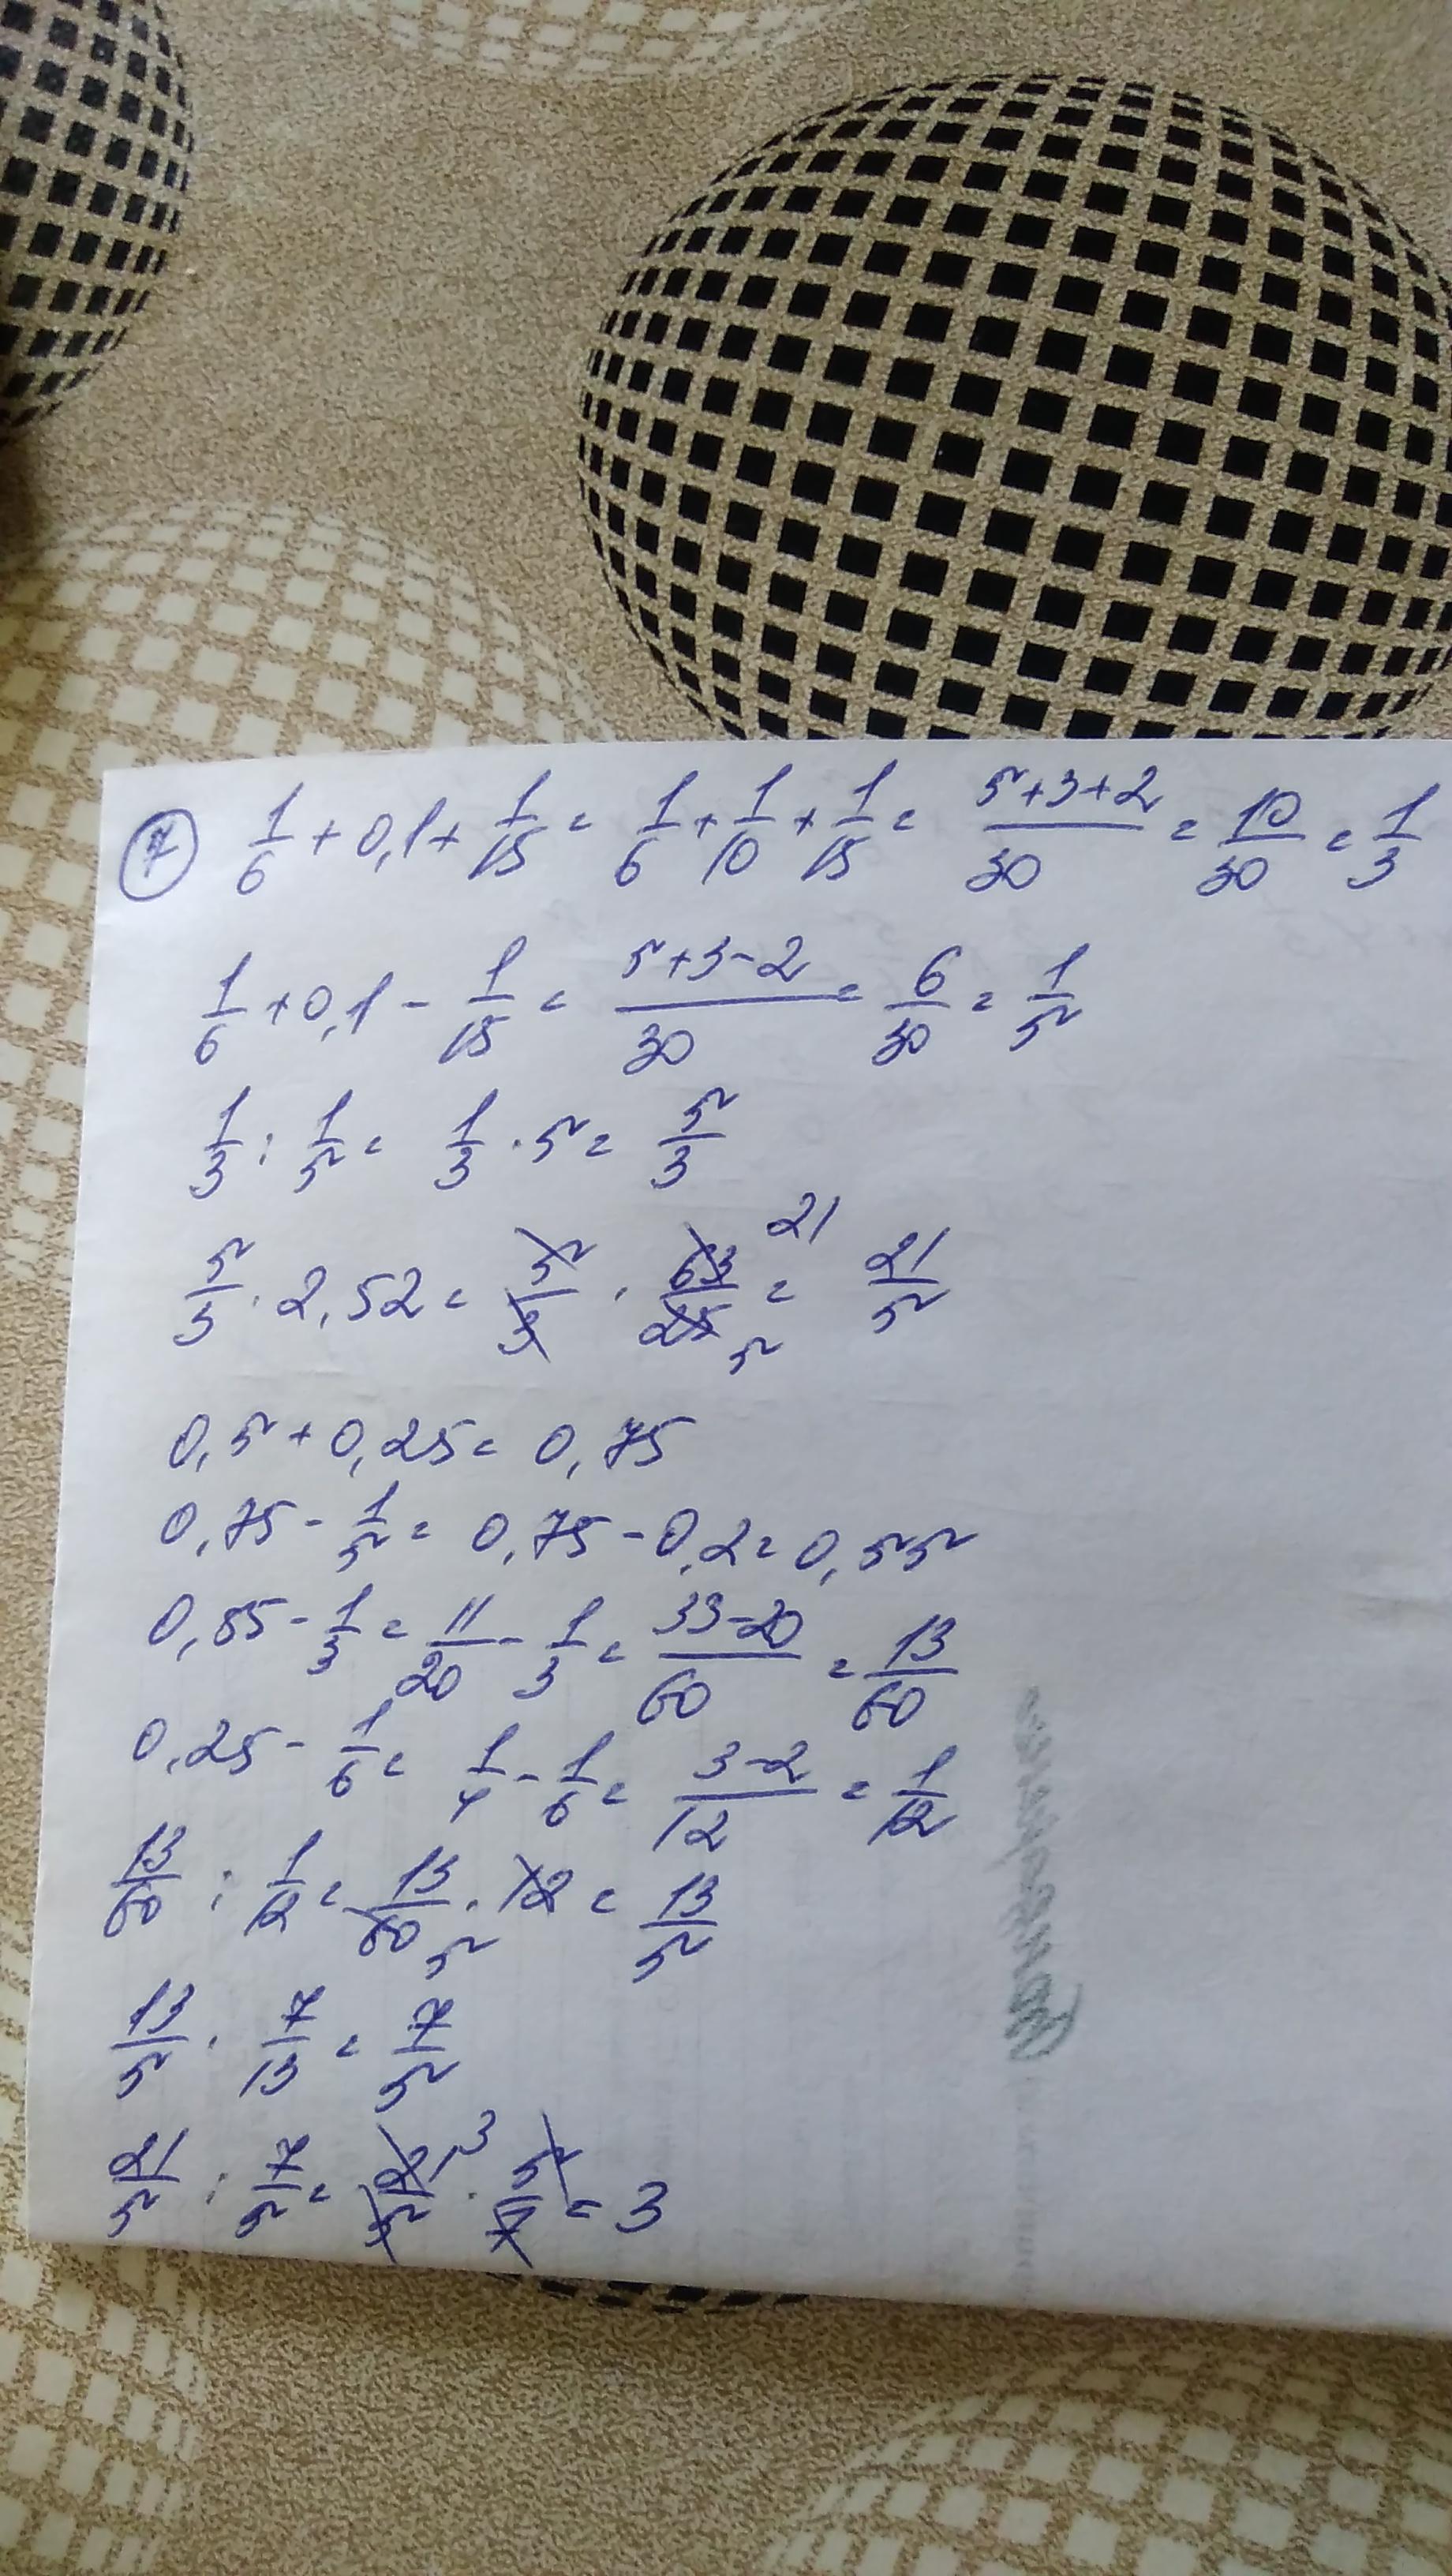 ⑦ 1/6 + 0,1 + 1/15 = 1/6 + 1/10 + 1/15 = (5+3+2)/30 = 10/30 = 1/3
1/6 + 0,1 - 1/15 = (5+3-2)/30 = 6/30 = 1/5
1/3 : 1/5 = 1/3 · 5 = 5/3
5/3 · 2,52 = 5/3 · 63/25 = 21/5
0,5 + 0,25 = 0,75
0,75 - 1/5 = 0,75 - 0,2 = 0,55
0,85 - 1/3 = 11/20 - 1/3 = (33-20)/60 = 13/60
0,25 - 1/6 = 1/4 - 1/6 = (3-2)/12 = 1/12
13/60 : 1/12 = 13/60 · 12 = 13/5
13/5 · 7/13 = 7/5
21/5 : 7/5 = 21/5 · 5/7 = 3